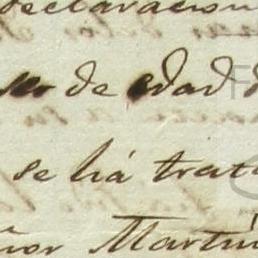 declaracion
de edad d
se há trata
ñor Martín